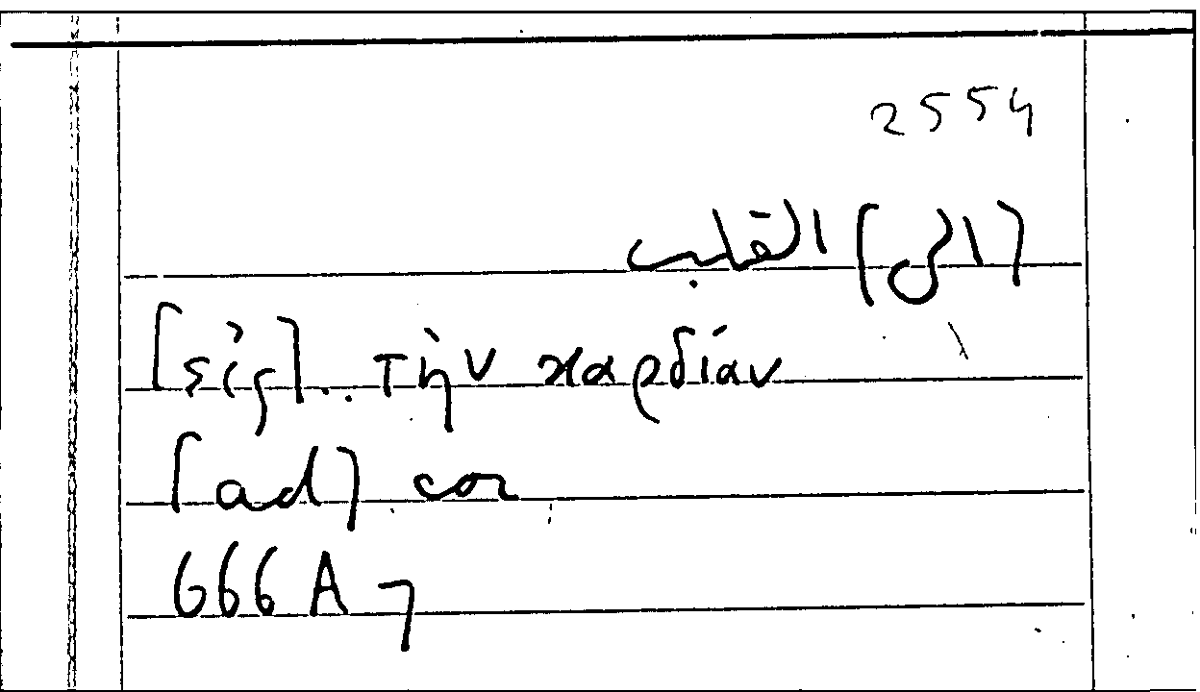 2554
[الى] القلب
[εἰς].. τὴν καρδίαν
[ad] cor
666 A 7